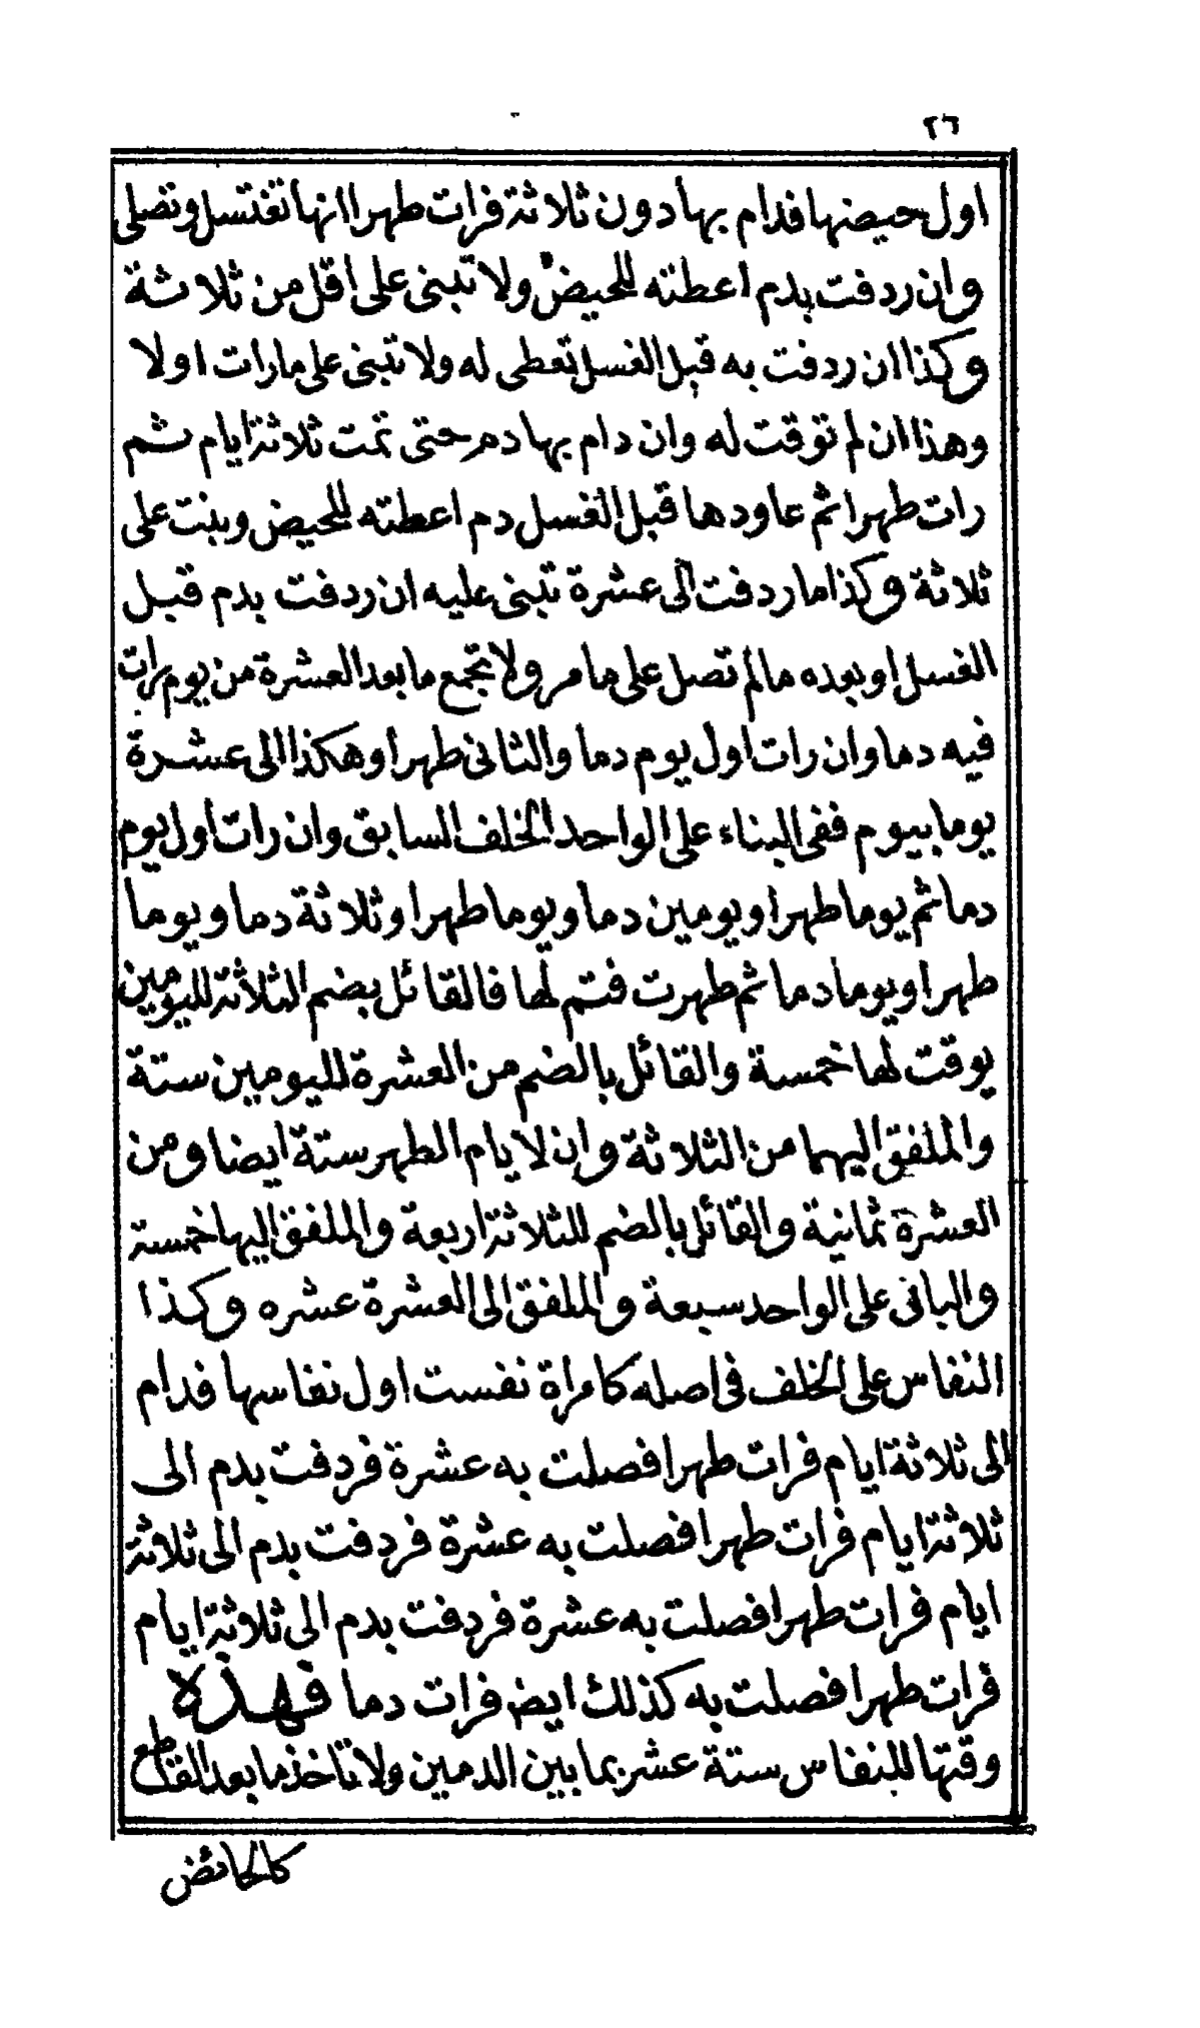 ٢٦
اول حيضها فدام بها دون ثلاثة فرات طهرا انها تغتسل وتصلى
وان ردفت بدم اعطته للحيض ولا تبنى على اقل من ثلاثة
وكذا ان ردفت به قبل الغسل تعطى له ولا تبنى على ما رات اولا
وهذا ان لم توقت له وان دام بها دم حتى تمت ثلاثة ايام ثم
رات طهرا ثم عاودها قبل الغسل دم اعطته للحيض وبنت على
ثلاثة وكذا ما ردفت الى عشرة تبنى عليه ان ردفت بدم قبل
الغسل او بعده ما لم تصل على ما مر ولا تجمع ما بعد العشرة من يوم رات
فيه دما وان رات اول يوم دما والثانى طهرا وهكذا الى عشرة
يوما بيوم ففى البناء على الواحد الخلف السابق وان رات اول يوم
دما ثم يوما طهرا ويومين دما ويوما طهرا وثلاثة دما ويوما
طهرا ويوما دما ثم طهرت فتم لها فالقائل بضم الثلاثة لليومين
يوقت لها خمسة والقائل بالضم من العشرة لليومين ستة
والملفق اليهما من الثلاثة وان لايام الطهر ستة ايضا ومن
العشرة ثمانية والقائل بالضم للثلاثة اربعة والملفق اليها خمسة
والبانى على الواحد سبعة والملفق الى العشرة عشره وكذا
النفاس على الخلف فى اصله كامراة نفست اول نفاسها فدام
الى ثلاثة ايام فرات طهرا فصلت به عشرة فردفت بدم الى
ثلاثة ايام فرات طهرا فصلت به عشرة فردفت بدم الى ثلاثة
ايام فرات طهرا فصلت به عشرة فردفت بدم الى ثلاثة ايام
فرات طهرا فصلت به كذلك ايض فرات دما فهذه
وقتها للنفاس ستة عشر بما بين الدمين ولا تاخذ ما بعد القاطع
كالحائض